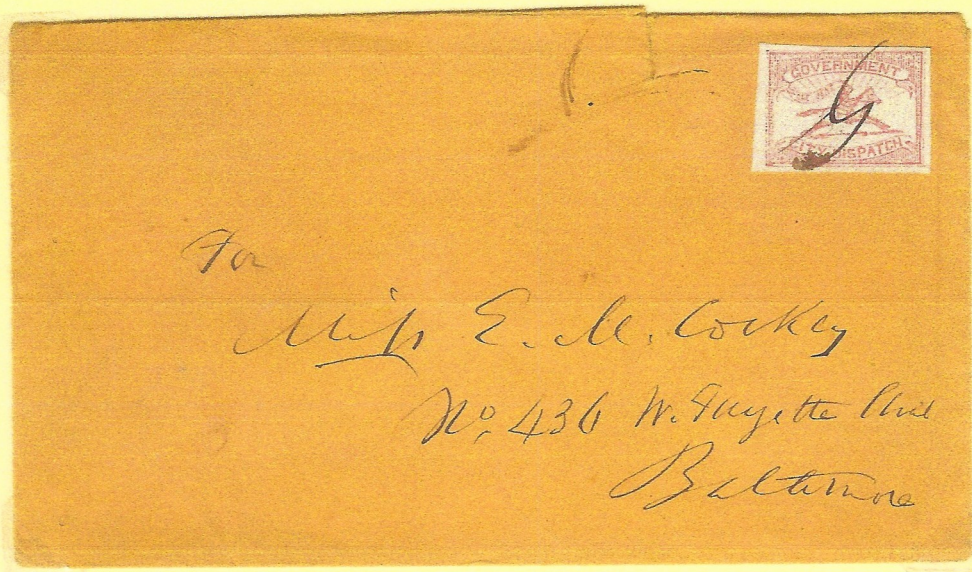 GOVERNMENT
CITY DISPATCH
For
Miss E. M. Cockey
No. 436 W. Fayette
Baltimore